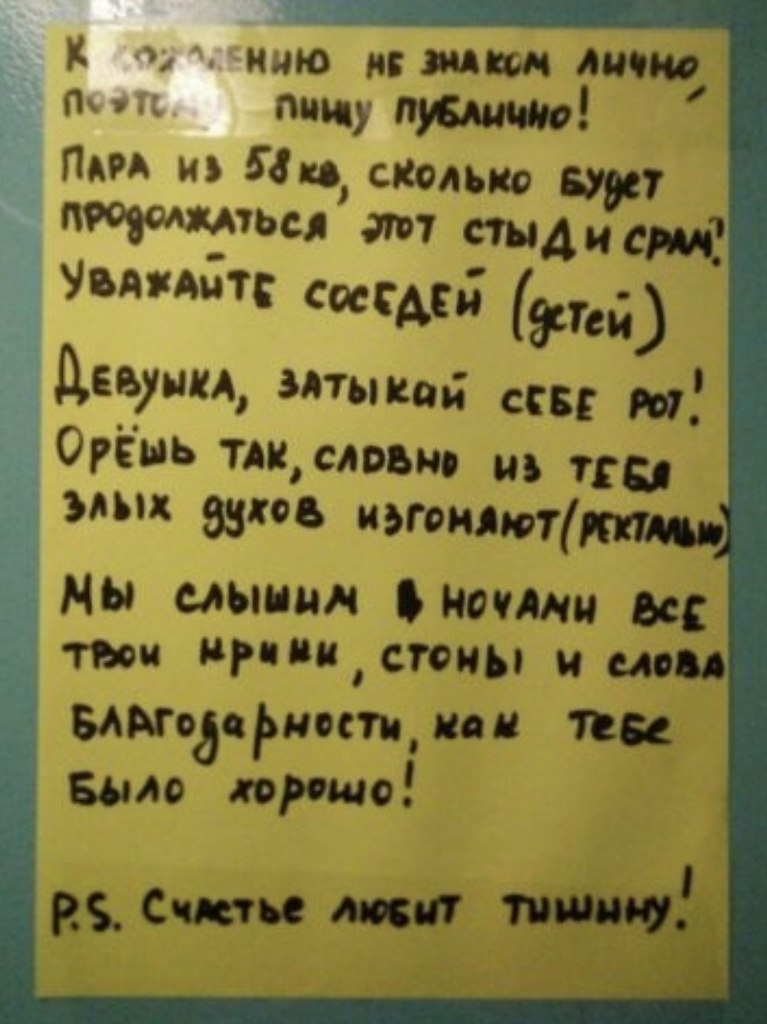 К сожалению не знаком лично,
поэтому пишу публично!
Пара из 58 кв, сколько будет
продолжаться этот стыд и срам?
Уважайте соседей (детей)
Девушка, затыкай себе рот!
Орёшь так, словно из тебя
злых духов изгоняют (ректально)
Мы слышим ночами все
твои крики, стоны и слова
благодарности, как тебе
было хорошо!
P.S. Счастье любит тишину!